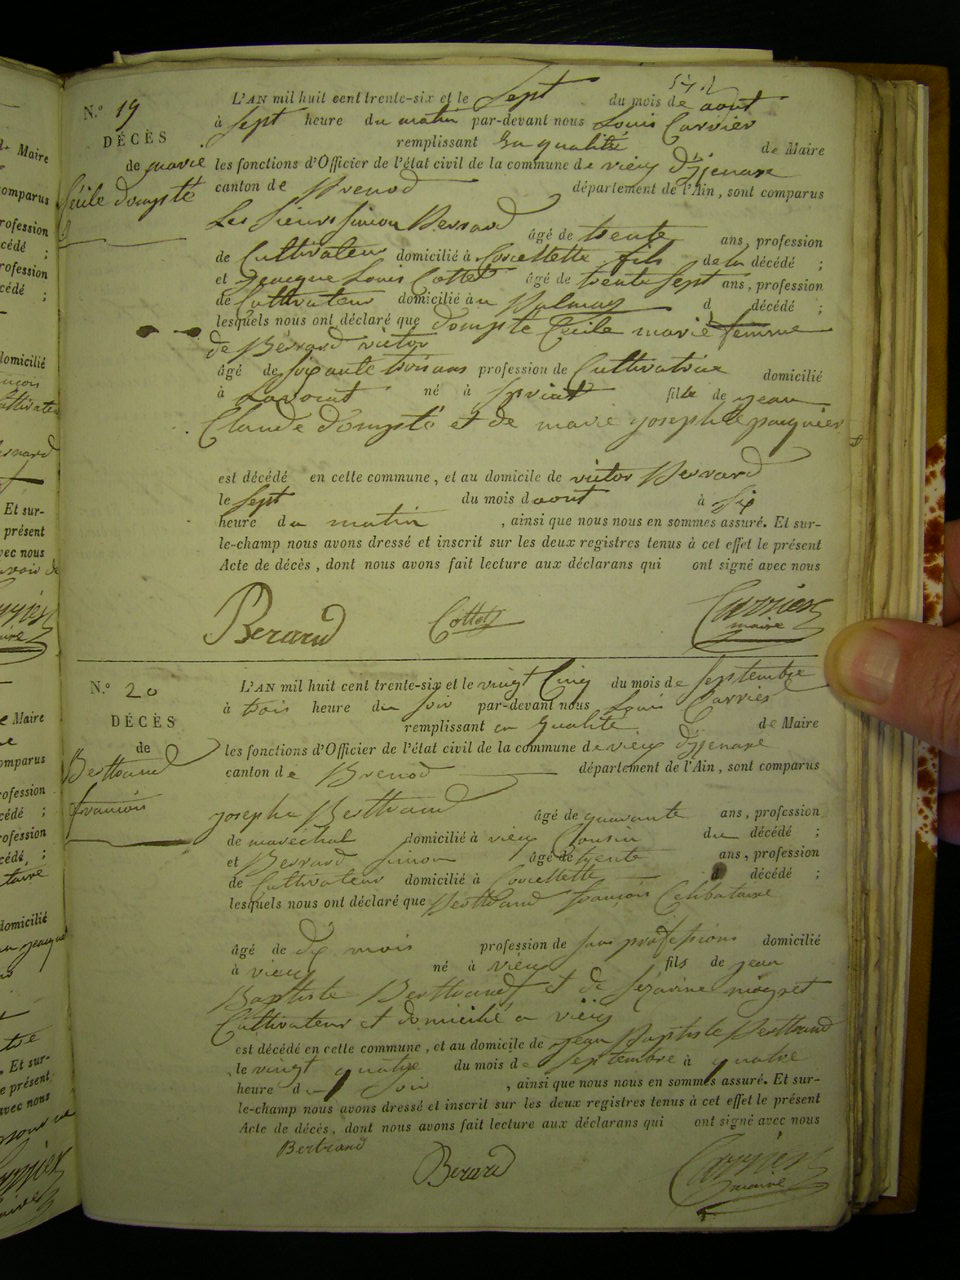 N.º 19
DÉCÈS
de marie
Cécile dompté
L'AN mil huit cent trente-six et le Sept du mois de aout
à Sept heure du matin par-devant nous Louis Carrier
remplissant En qualité de Maire
les fonctions d'Officier de l'état civil de la commune de vieux d'izenave
canton de Brenod département de l'Ain, sont comparus
Les Sieurs Simon Berrard âgé de trente ans, profession
de Cultivateur domicilié à Corcellette fils de la décédé ;
et Jacque Louis Cottet âgé de trente Sept ans, profession
de Cultivateur domicilié au Balmay d décédé ;
lesquels nous ont déclaré que dompté Cécile marie femme
de Berrard victor
âgé de soixante trois ans profession de Cultivatrice domicilié
à Lavorat né à fille de jean
Claude dompté et de marie josephte paquier
est décédé en cette commune, et au domicile de victor Berrard
le Sept du mois d aout à Six
heure du matin, ainsi que nous nous en sommes assuré. Et sur-
le-champ nous avons dressé et inscrit sur les deux registres tenus à cet effet le présent
Acte de décès, dont nous avons fait lecture aux déclarans qui ont signé avec nous
Berard Cottet Carrier
maire
N.º 20
DÉCÈS
de
Berthrand
francois
L'AN mil huit cent trente-six et le vingt Cinq du mois de Septembre
à trois heure du Soir par-devant nous Louis Carrier
remplissant en qualité de Maire
les fonctions d'Officier de l'état civil de la commune de vieux d'izenave
canton de Brenod département de l'Ain, sont comparus
joseph Berthrand âgé de quarante ans, profession
de maréchal domicilié à vieux Cousin du décédé ;
et Berrard Simon âgé de trente ans, profession
de Cultivateur domicilié à Corcellette d décédé ;
lesquels nous ont déclaré que Berthrand francois Celibataire
âgé de dix mois profession de sans professions domicilié
à vieux né à vieux fils de jean
Baptiste Berthrand et de
Cultivateur et domicilié a vieux
est décédé en cette commune, et au domicile de jean Baptiste Berthrand
le vingt quatre du mois de Septembre à quatre
heure du Soir, ainsi que nous nous en sommes assuré. Et sur-
le-champ nous avons dressé et inscrit sur les deux registres tenus à cet effet le présent
Acte de décès, dont nous avons fait lecture aux déclarans qui ont signé avec nous
Bertrand
Berard Carrier
maire